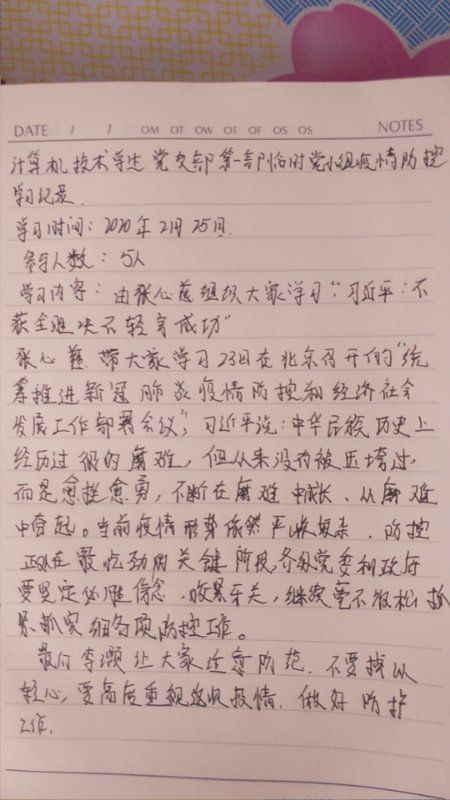 DATE / / OM OT OW OT OF OS OS NOTES
计算机技术学生党支部第一部临时党小组疫情防控
学习记录
学习时间：2020年2月25日.
参与人数：5人
学习内容：由张心慈组织大家学习“习近平：不
获全胜决不轻言成功”
张心慈带大家学习23日在北京召开的“统
筹推进新冠肺炎疫情防控和经济社会
发展工作部署会议”，习近平说：中华民族历史上
经历过很多磨难，但从来没有被压垮过，
而是愈挫愈勇，不断在磨难中成长、从磨难
中奋起。当前疫情形势依然严峻复杂，防控
正处在最吃劲的关键阶段，各级党委和政府
要坚定必胜信念，咬紧牙关，继续毫不放松抓
紧抓实细各项防控工作。
最后李灏让大家注意防范，不要掉以
轻心，要高度重视这次疫情，做好防护
工作.